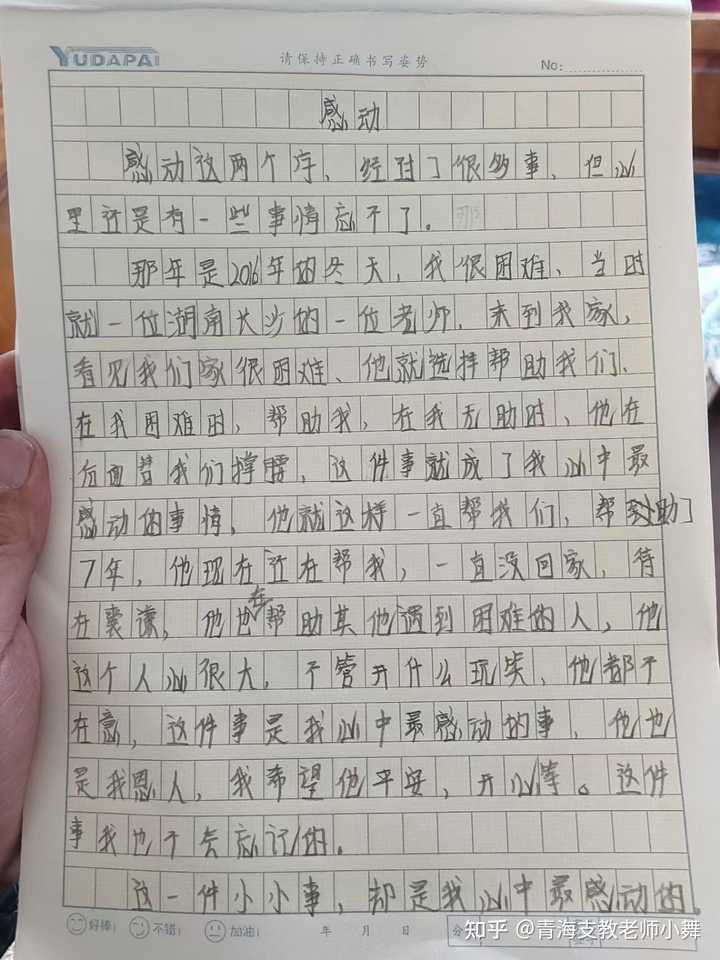 YUDAPAI
请保持正确书写姿势
No:
感动
感动这两个字、经过了很多事、但心
里还是有一些事情忘不了。那
那年是2016年的冬天，我很困难、当时
就一位湖南长沙的一位老师，来到我家，
看见我们家很困难、他就选择帮助我们、
在我困难时，帮助我，在我无助时、他在
后面替我们撑腰，这件事就成了我心中最
感动的事情，他就这样一直帮我们，帮助了
7年，他现在还在帮我，一直没回家，待
在囊谦，他也在帮助其他遇到困难的人，他
这个人心很大，不管开什么玩笑、他都不
在意，这件事是我心中最感动的事、他也
是我恩人，我希望他平安，开心等。这件
事我也不会忘记的。
这一件小小事，却是我心中最感动的。
好棒! 不错! 加油! 年 月 日 分
知乎 @青海支教老师小舞